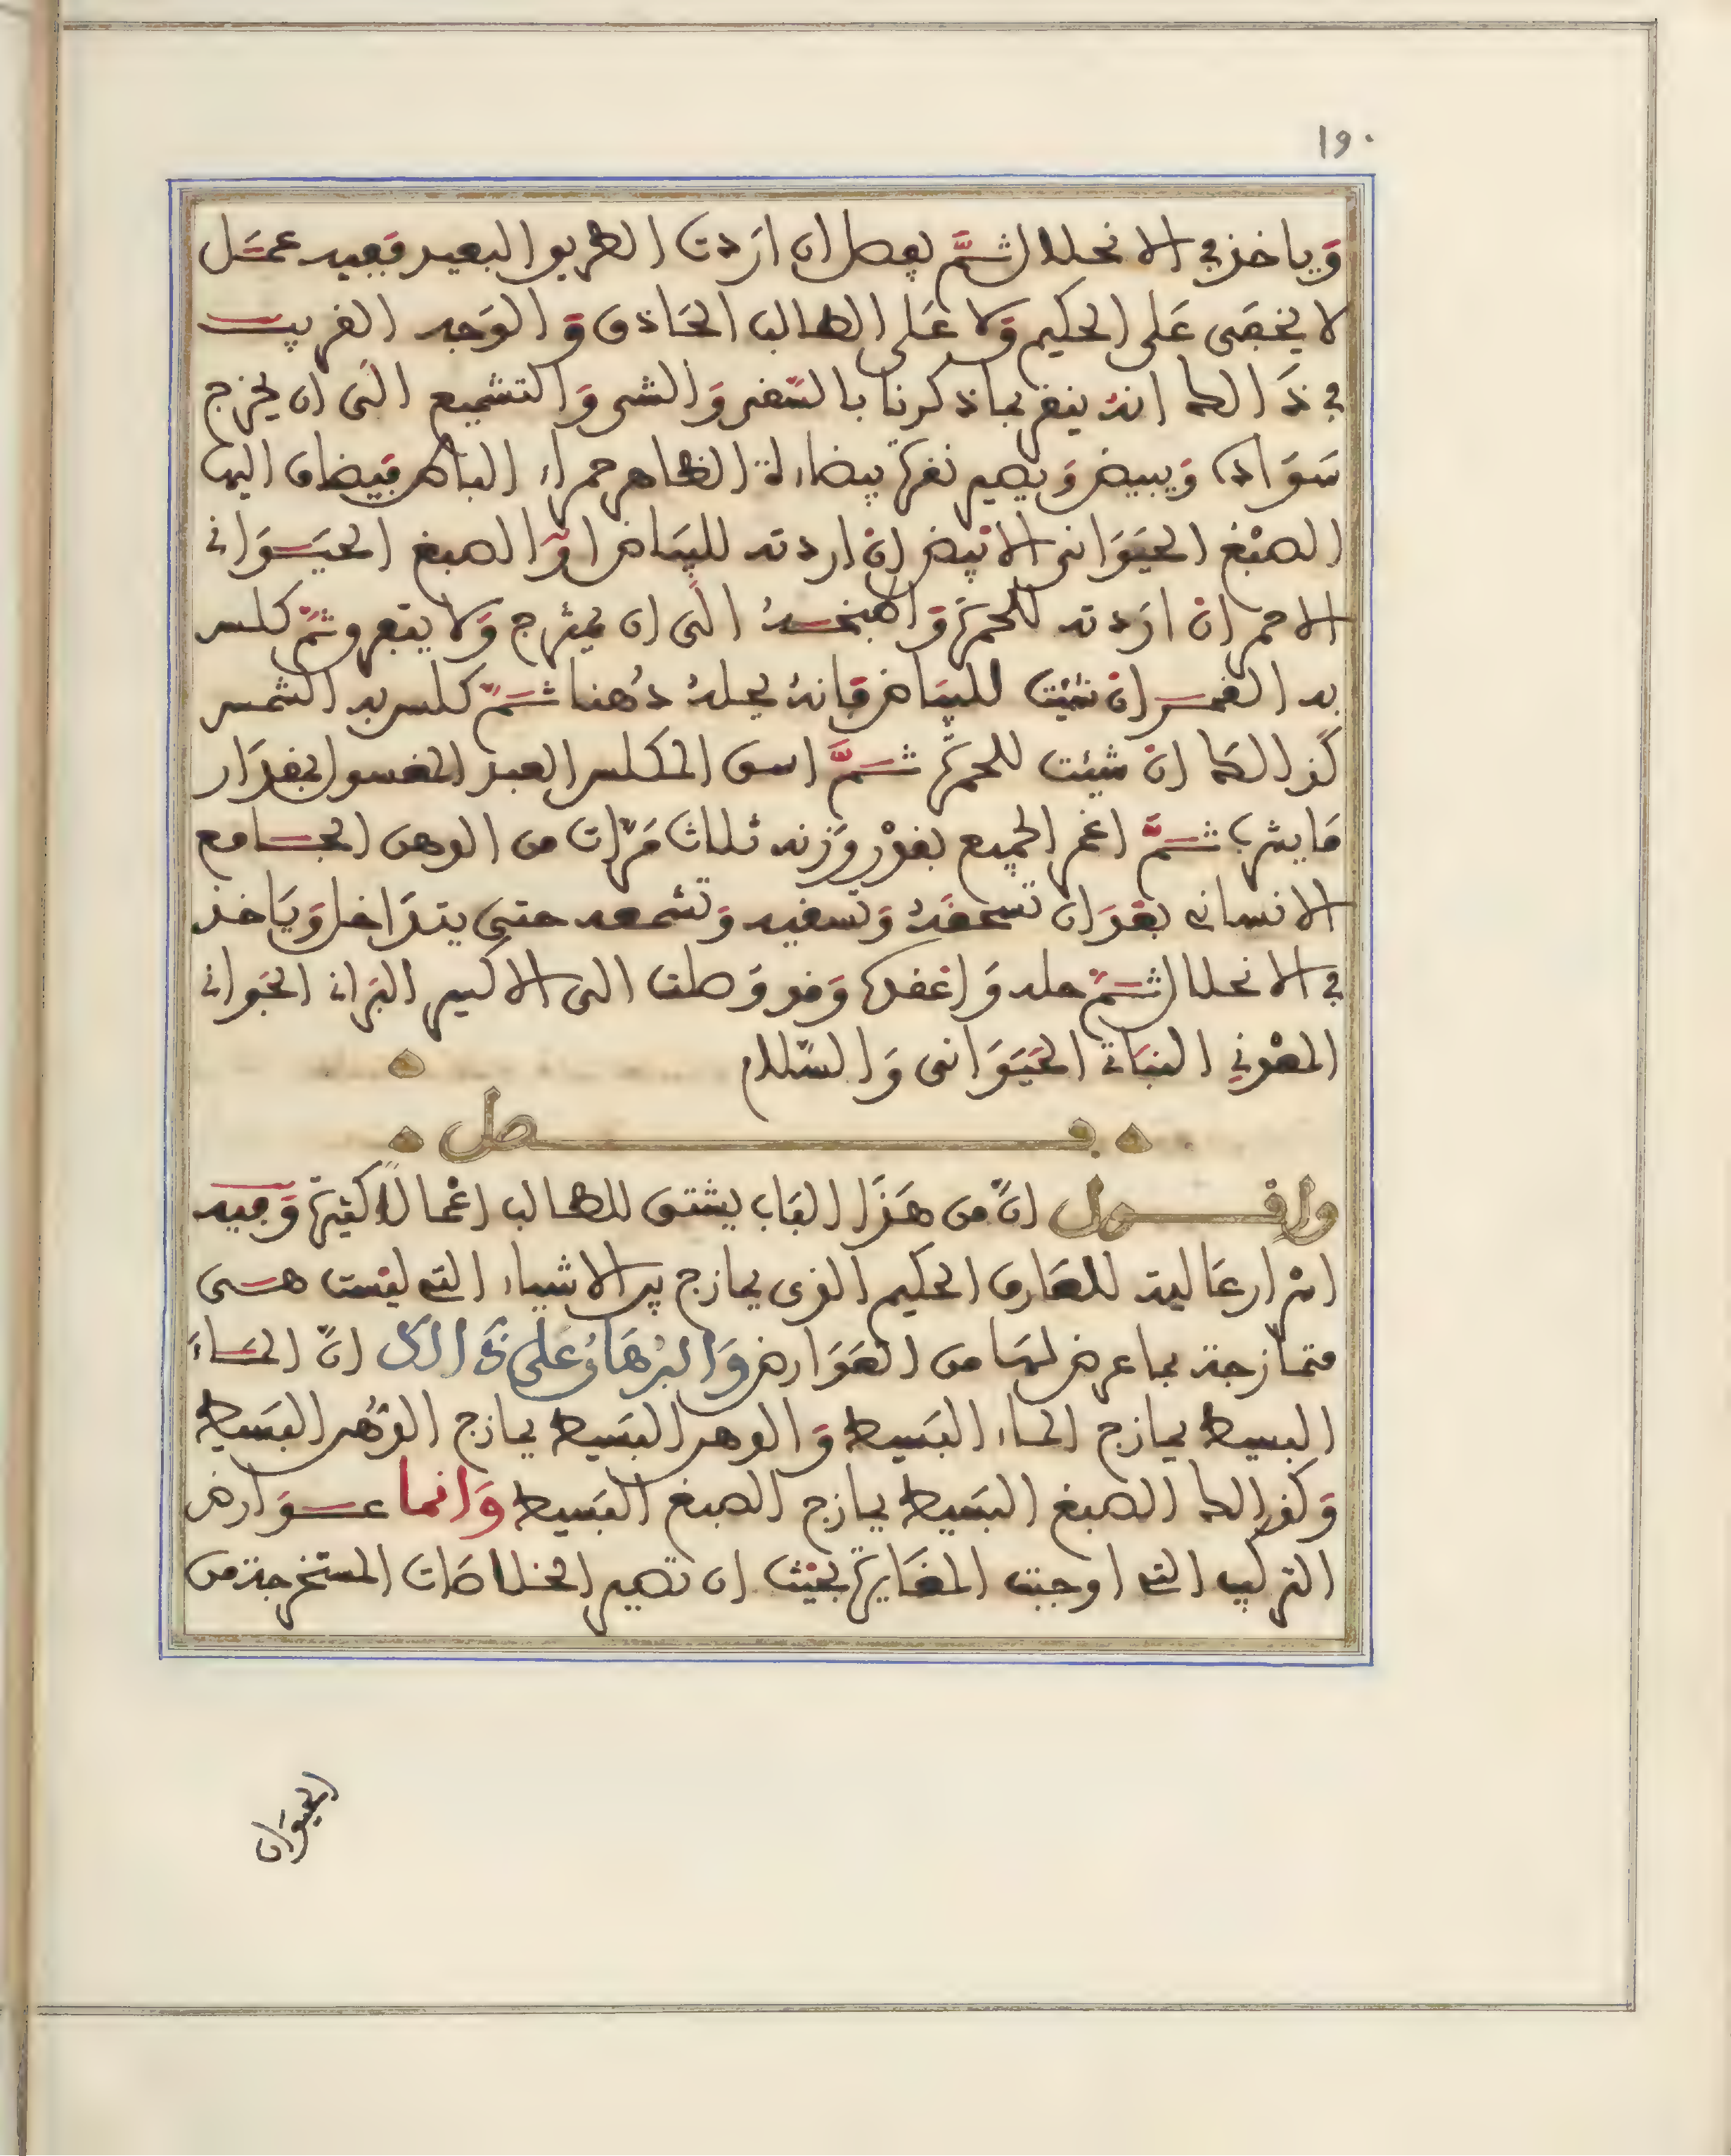 ١٩٠
وياخذ في الانحلال ثم يفصل ان اردت الطريق البعيد ففيه عمل
لا يخفى على الحكيم ولا على الطالب الحاذق والوجه القريب
في ذالك انه ينقى بما ذكرنا بالسقي والشي والتشميع الى ان يخرج
سواده ويبيض ويصير نقرة بيضاء لة الظاهر حمراء الباطن فيضاف اليها
الصبغ الحيواني الابيض ان اردته للبياض او الصبغ الحيواني
الاحمر ان اردته للحمرة واطبخه الى ان يمتزج ولا يتفرق ثم كلس
به القمر ان شئت للبياض فانه يحله دهنا ثم كلس به الشمس
كذالك ان شئت للحمرة ثم اسق المكلس العبد المغسول بمقدار
ما يشرب ثم اغمر الجميع بقدر وزنه ثلاث مرات من الدهن الجامع
الانساني بعد ان تسحقه وتسقيه وتشمعه حتى يتداخل وياخذ
في الانحلال ثم حله واعقده وقد وصلت الى الاكسير البراني الجواني
المعدني النباتي الحيواني والسلام
فصل
واقول ان من هذا الباب يشتق للطالب اعمالا كثيرة وفيه
اسرار عالية للعارف الحكيم الذي يمازج بين الاشياء التي ليست هي
متمازجة بما عرض لها من العوارض والبرهان على ذالك ان الماء
البسيط يمازج الماء البسيط والدهن البسيط يمازج الدهن البسيط
وكذالك الصبغ البسيط يمازج الصبغ البسيط وانما عوارض
التركيب التي اوجبت المغايرة بحيث ان تصير الخلاصات المستخرجة من
الحيوان